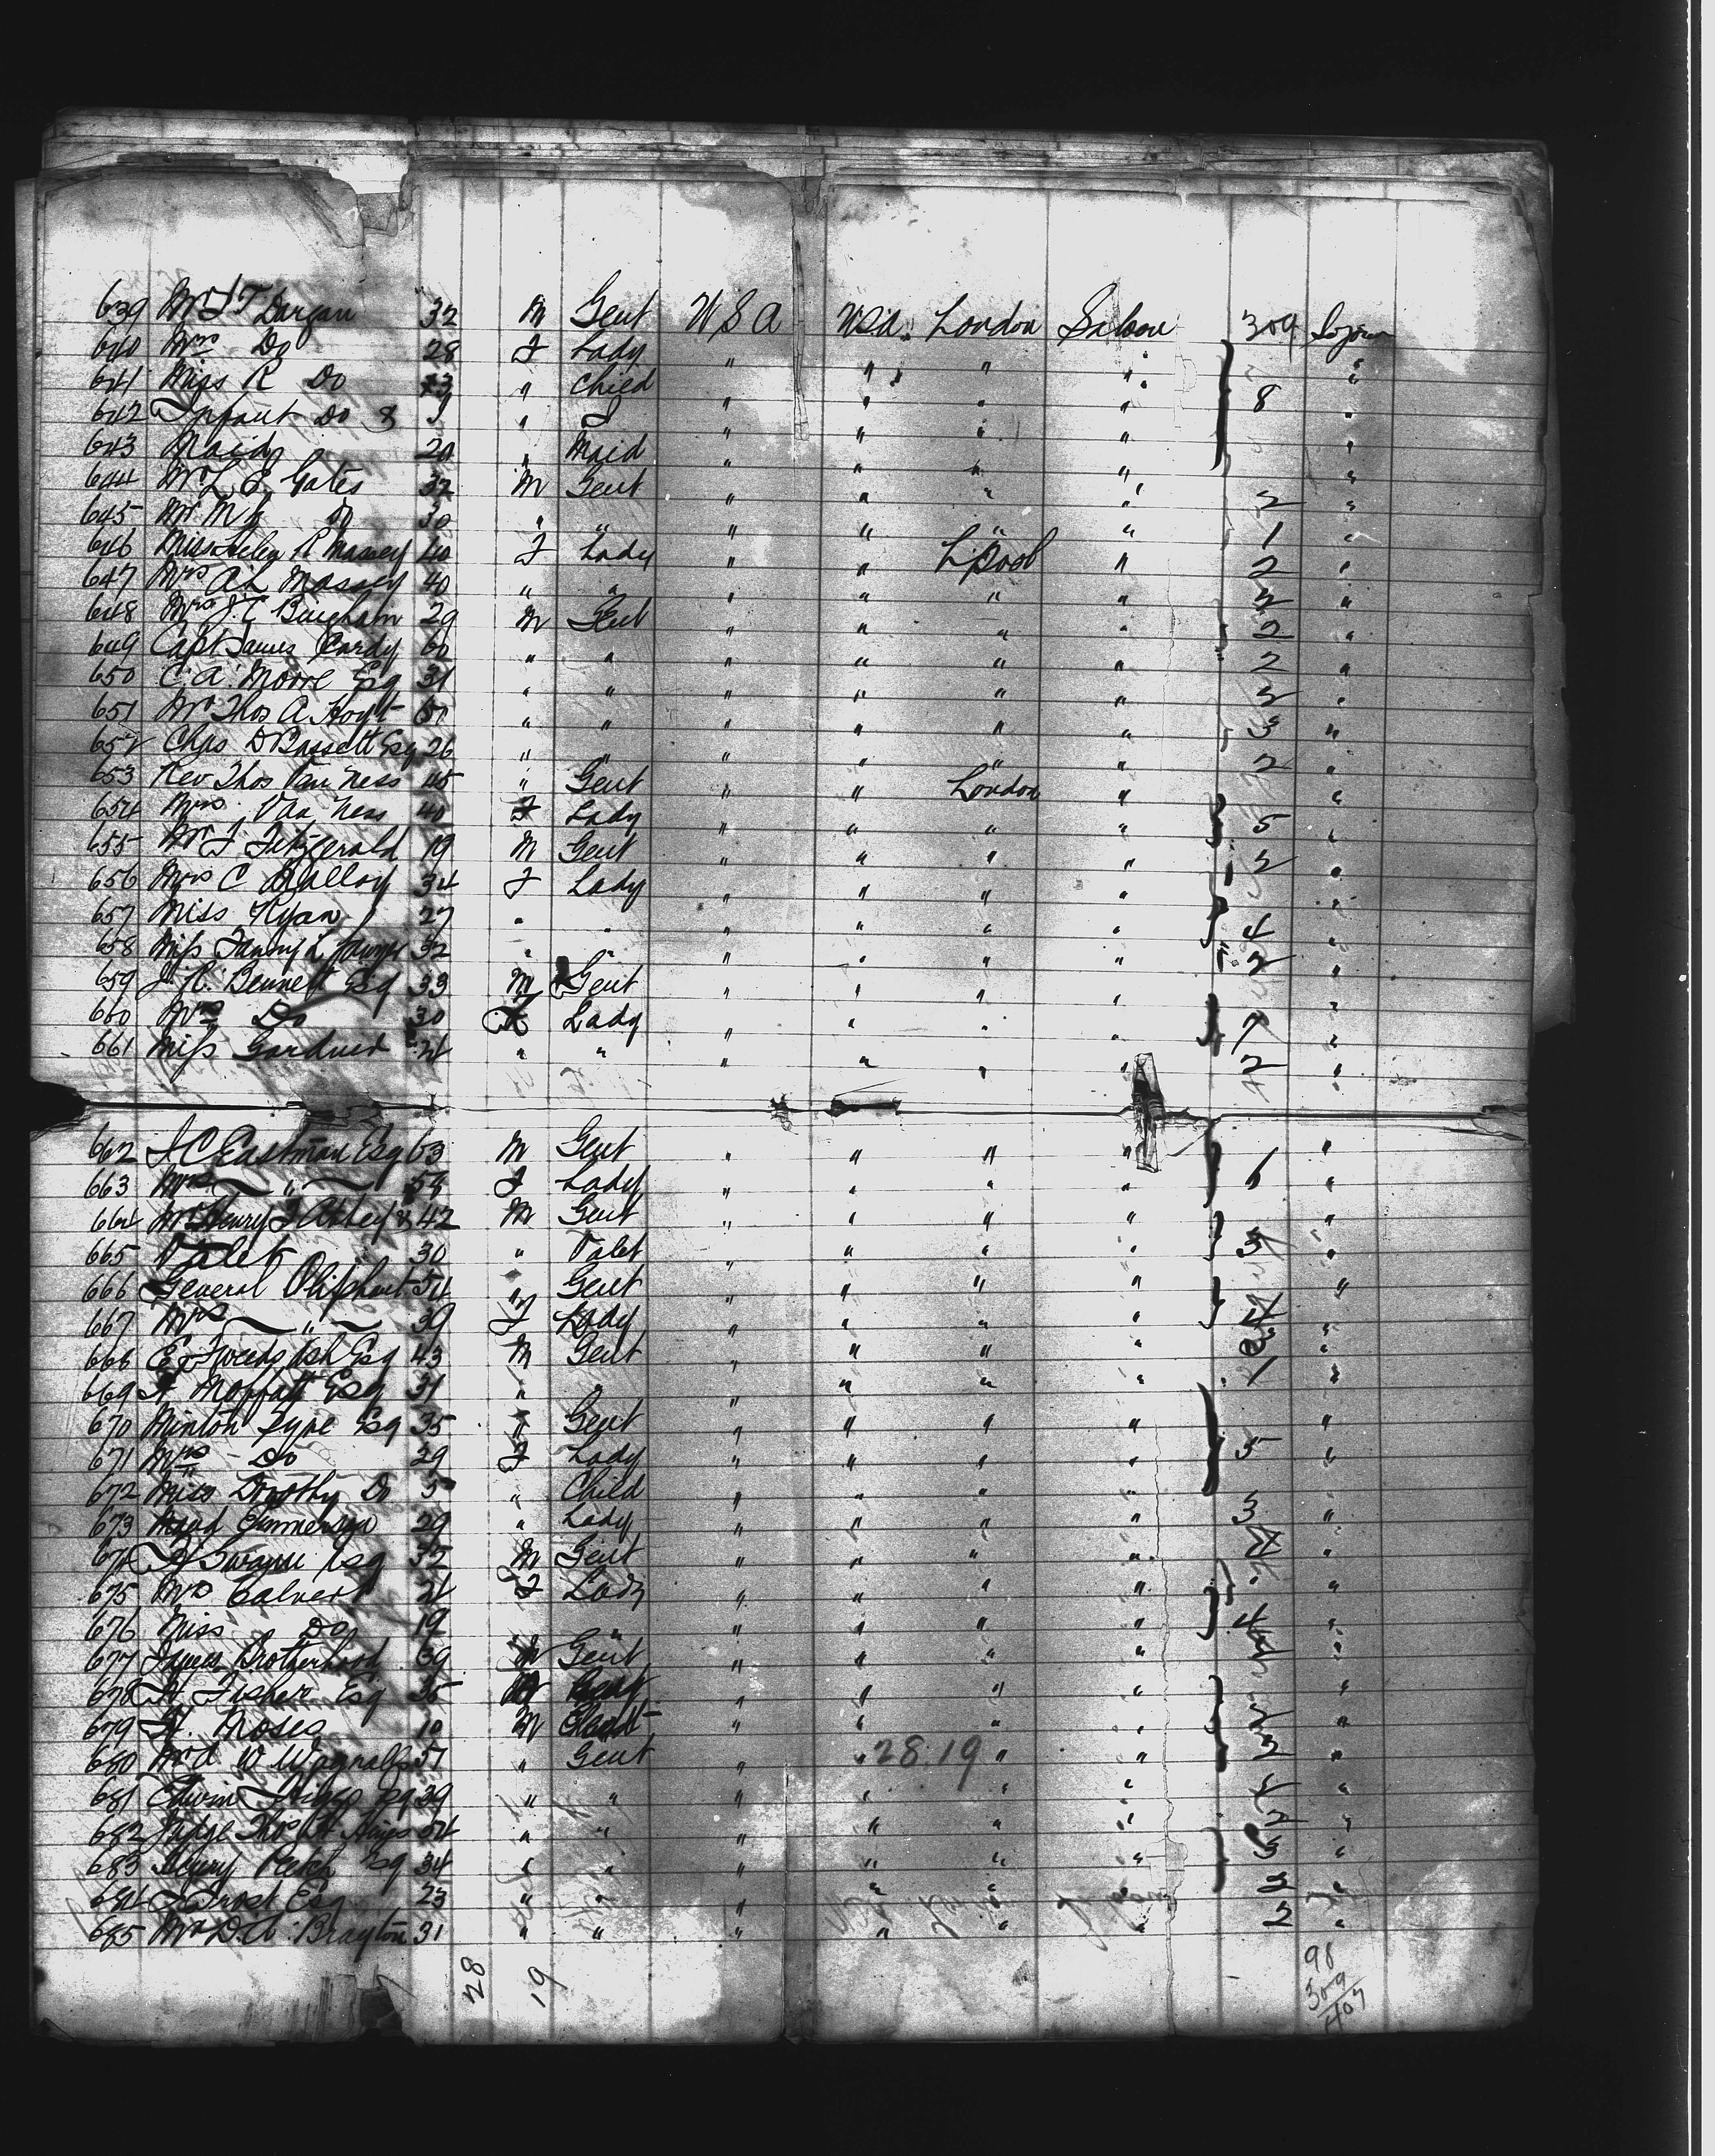 639 Mr J T Dargan 32 M Gent U S A USA London Saloon 309 Sojourn
640 Mrs Do 28 F Lady " " " " "
641 Miss R Do " Child " " " " 8 "
642 Infant Do & " " " " " "
643 Maid 20 " Maid " " " " "
644 Mr L E Gates 32 M Gent " " " " 2 "
645 Mr M Do 30 " " " " " " 1 "
646 Miss R Massey 40 F Lady " " L'pool " 2 "
647 Mrs A L Massey 40 " " " " " " 2 "
648 J. C Bingham 29 M Gent " " " " 2 "
649 Capt James 60 " " " " " " 2 "
650 C. A. Moore Esq 31 " " " " " " 2 "
651 Mr Thos A. Hoyt " " " " " " 3 "
652 Chas D Bassett Esq 26 " " " " " " 2 "
653 Rev Thos Van Ness 45 " Gent " " London " "
654 Mrs Van Ness 40 F Lady " " " " 5 "
655 Mr J. Fitzgerald 19 M Gent " " " " 2 "
656 Mrs C Malloy 34 F Lady " " " " "
657 Miss Ryan 27 " " " " " " 4 "
658 Miss Fanny L 32 " " " " " " 2 "
659 J. R. Bennett Esq 33 M Gent " " " " "
660 Mrs Do 30 F Lady " " " " 7 "
661 Miss Gardner " " " " " " 2 "
662 J C Eastman Esq 63 M Gent " " " " "
663 Mrs " 58 F Lady " " " " 6 "
664 Mr Henry Abbey & 42 M Gent " " " " "
665 Valet 30 " Valet " " " " 3 "
666 General Oliphant 54 " Gent " " " " "
667 Mrs " 39 F Lady " " " " 4 "
668 Ash Esq 43 M Gent " " " " "
669 Moffatt Esq 31 " " " " " " 1 "
670 Minton Pyne Esq 35 " Gent " " " " "
671 Mrs Do 29 F Lady " " " " 5 "
672 Miss Dorothy Do " Child " " " " "
673 29 " Lady " " " " 3 "
674 Swayne Esq 32 M Gent " " " " "
675 Mrs Calvert F Lady " " " " "
676 Miss Do 19 " " " " " " 4 "
677 James Brotherhood 39 M Gent " " " " 2 "
678 H Fisher Esq 35 M Gent " " " " "
679 H. Moses 10 M " " " " 2 "
680 Mr A W Wagnalls 51 " Gent " " 28.19 " " 3 "
681 Edwin Esq 39 " " " " " " "
682 Judge Thos " " " " " " 2 "
683 Henry Esq 34 " " " " " " 3 "
684 Frost Esq 23 " " " " " " 2 "
685 Mr D. A. Brayton 31 " " " " " " 2 "
28 19
98
309
407